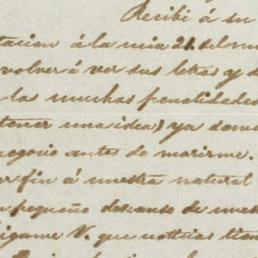 Recibi á su
tacion á la mia 21. del mes
volver á ver sus letras y d
las muchas penalidades
tener una idea) ya
negocio antes de morirme.
r fin á nuestra natural
pequeño descanso de nuest
igame V. que noticias tien